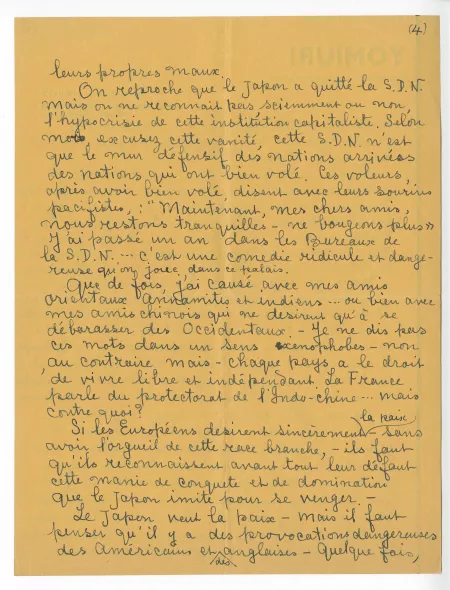 (4)
leurs propres maux.
On reproche que le Japon a quitté la S.D.N.
Mais on ne reconnait pas sciemment ou non,
l'hypocrisie de cette institution capitaliste. Selon
moi excusez cette vanité, cette S.D.N. n'est
que le mur défensif des nations arrivées
des nations qui ont bien volé. Ces voleurs,
après avoir bien volé disent avec leurs sourires
pacifistes, : "Maintenant, mes chers amis,
nous restons tranquilles – ne bougeons plus»
J'ai passé un an dans les Bureaux de
la S.D.N. ... c'est une comedie ridicule et dange-
reuse qu'on joue, dans ce palais.
Que de fois, j'ai causé avec mes amis
orientaux annamites et indiens ... ou bien avec
mes amis chinois qui ne desirent qu'à se
débarasser des Occidentaux. – Je ne dis pas
ces mots dans un sens xenophobes – non
au contraire mais – chaque pays a le droit
de vivre libre et indépendant. La France
parle du protectorat de l'Indo-chine ... mais
contre quoi?
Si les Européens desirent sincèrement la paix – sans
avoir l'orgueil de cette race branche, – ils faut
qu'ils reconnaissent avant tout leur défaut
cette manie de conquete et de domination
que le Japon imite pour se venger. –
Le Japon veut la paix – mais il faut
penser qu'il y a des provocations dangereuses
des Américains et des anglaises – Quelque fois,